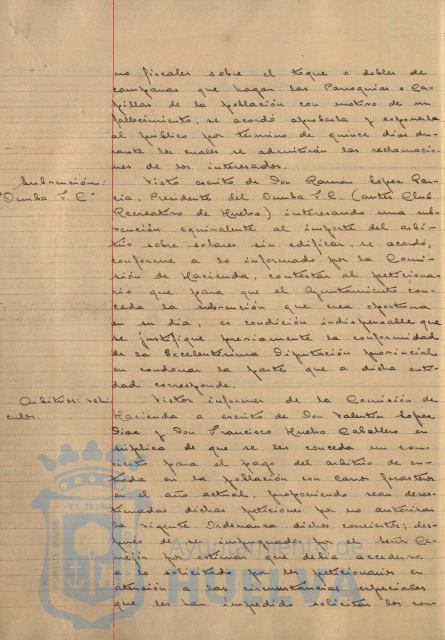 no fiscales sobre el toque o dobles de
campanas que hagan las Parroquias o Ca-
pillas de la población con motivo de un
fallecimiento, se acordó aprobarla y exponerla
al público por término de quince días du-
rante los cuales se admitirán las reclamacio-
nes de los interesados.
Subvención:
"Onuba F.C."
Visto escrito de Don Ramón López Gar-
cía, Presidente del Onuba F.C. (antes Club
Recreativo de Huelva) interesando una sub-
vención equivalente al importe del arbi-
trio sobre solares sin edificar, se acordó,
conforme a lo informado por la Comi-
sión de Hacienda, contestar al peticiona-
rio que para que el Ayuntamiento con-
ceda la subvención que crea oportuna
en su día, es condición indispensable que
se justifique previamente la conformidad
de la Excelentísima Diputación provincial
en condonar la parte que a dicha enti-
dad corresponde.
Arbitrios: vehí-
culos.
Vistos informes de la Comisión de
Hacienda a escrito de Don Valentín López
Díaz y Don Francisco Huelva Caballero en
súplica de que se les conceda un con-
cierto para el pago del arbitrio de en-
trada en la población con carros forasteros
en el año actual, proponiendo sean deses-
timadas dichas peticiones por no autorizar
la vigente Ordenanza dichos conciertos; des-
pués de ser impugnados por el señor
por estimar que debía accederse
a lo solicitado por los peticionarios en
atención a las circunstancias especiales
que les han impedido solicitar los con-
EX TERRAE
Ayuntamiento de
HUELVA